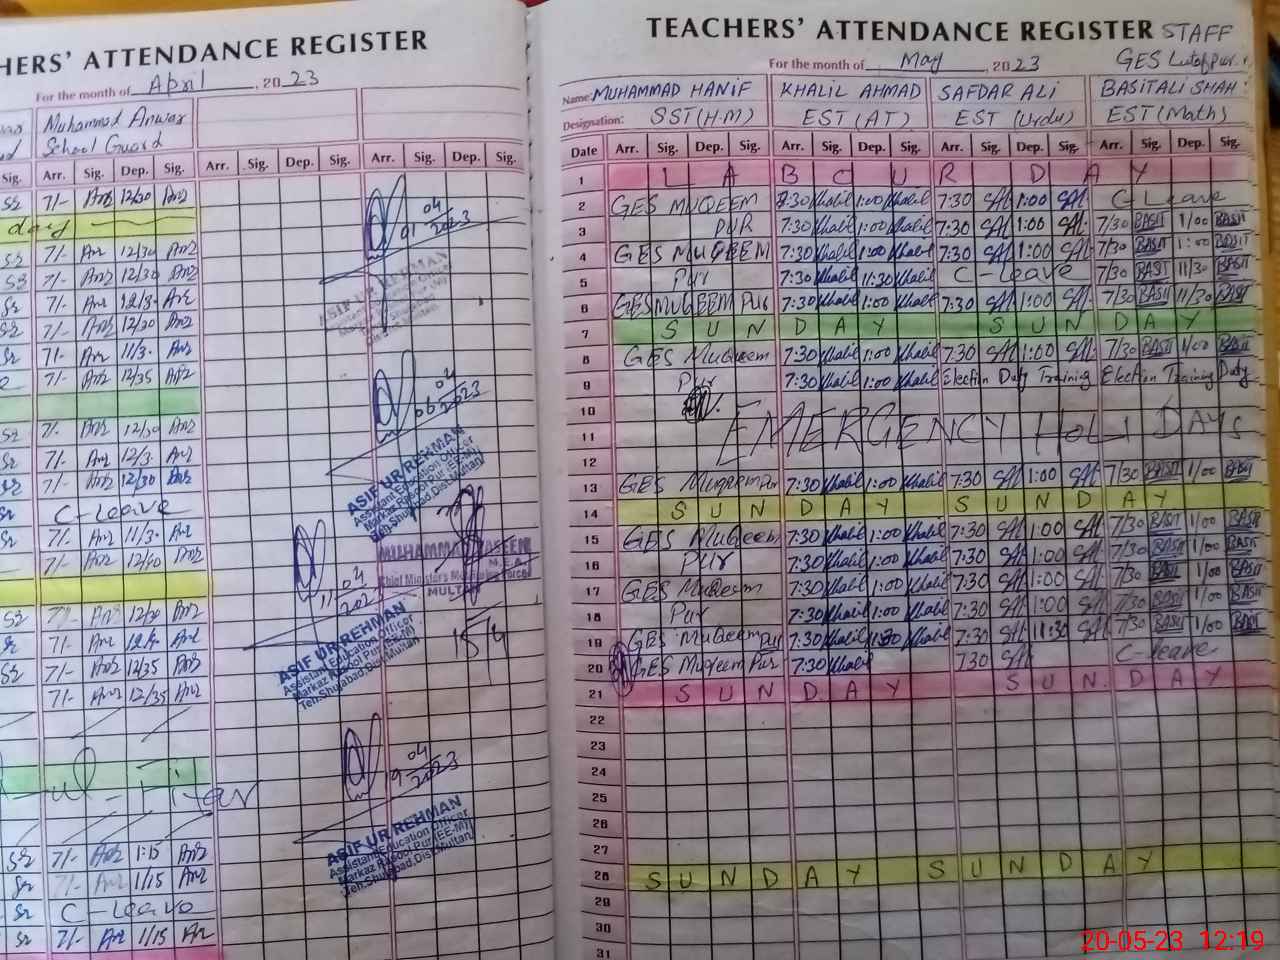 HERS' ATTENDANCE REGISTER
For the month of April, 2023
Muhammad Anwar
School Guard
Sig. Arr. Sig. Dep. Sig. Arr. Sig. Dep. Sig. Arr. Sig. Dep. Sig.
7/- Anr 12/30 Anr
day
7/- Anr 12/30 Anr
7/- Anr 12/30 Anr
7/- Anr 12/30 Anr
7/- Anr 11/3. Anr
7/- Anr 12/35 Anr
7/- Anr 12/30 Anr
7/- Anr 12/3. Anr
7/- Anr 12/30 Anr
C-Leave
7/- Anr 11/3. Anr
7/- Anr
7/- Anr 12/30 Anr
7/- Anr
7/- Anr 12/35 Anr
7/- Anr 12/35 Anr
ul-Fitar
7/- Anr 1:15 Anr
7/- Anr 1/15 Anr
C-Leave
7/- Anr 1/15 Anr
01 04 2023
ASIF UR REHMAN
06 04 2023
ASIF UR REHMAN
Assistant Education Officer
Markaz Rasool Pur (EE-M)
Teh.Shujabad,Dist.Multan
11 04 202
MUHAMMAD
M.E.A.
Chief Minister's Monitoring Force
MULTAN
15/4
ASIF UR REHMAN
Assistant Education Officer
Markaz Rasool Pur (EE-M)
Teh.Shujabad,Dist.Multan
19 04 2023
ASIF UR REHMAN
Assistant Education Officer
Markaz Rasool Pur (EE-M)
Teh.Shujabad,Dist.Multan
TEACHERS' ATTENDANCE REGISTER STAFF
For the month of May, 2023 GES Lutafpur.
Name: MUHAMMAD HANIF KHALIL AHMAD SAFDAR ALI BASIT ALI SHAH
Designation: SST (H.M) EST (AT) EST (Urdu) EST (Math)
Date Arr. Sig. Dep. Sig. Arr. Sig. Dep. Sig. Arr. Sig. Dep. Sig. Arr. Sig. Dep. Sig.
1 L A B O U R D A Y
2 GES MUQEEM 7:30 Khalil 1:00 Khalil 7:30 SAl 1:00 SAl C-Leave
3 PUR 7:30 Khalil 1:00 Khalil 7:30 SAl 1:00 SAl 7/30 BASIT 1/00 BASIT
4 GES MUQEEM 7:30 Khalil 1:00 Khalil 7:30 SAl 1:00 SAl 7/30 BASIT 1:00 BASIT
5 Pur 7:30 Khalil 11:30 Khalil C-Leave 7/30 BASIT 11/30 BASIT
6 GES MUQEEM Pur 7:30 Khalil 1:00 Khalil 7:30 SAl 1:00 SAl 7/30 BASIT 11/30 BASIT
7 S U N D A Y S U N D A Y
8 GES Muqeem 7:30 Khalil 1:00 Khalil 7:30 SAl 1:00 SAl 7/30 BASIT 1/00 BASIT
9 Pur 7:30 Khalil 1:00 Khalil Election Duty Training Election Training Duty
10
11 EMERGENCY HOLI DAYS
12
13 GES Muqeem Pur 7:30 Khalil 1:00 Khalil 7:30 SAl 1:00 SAl 7/30 BASIT 1/00 BASIT
14 S U N D A Y S U N D A Y
15 GES Muqeem 7:30 Khalil 1:00 Khalil 7:30 SAl 1:00 SAl 7/30 BASIT 1/00 BASIT
16 PUr 7:30 Khalil 1:00 Khalil 7:30 SAl 1:00 SAl 7/30 BASIT 1/00 BASIT
17 GES Muqeem 7:30 Khalil 1:00 Khalil 7:30 SAl 1:00 SAl 7/30 BASIT 1/00 BASIT
18 Pur 7:30 Khalil 1:00 Khalil 7:30 SAl 1:00 SAl 7/30 BASIT 1/00 BASIT
19 GES Muqeem Pur 7:30 Khalil Khalil 7:30 SAl 11:30 SAl 7/30 BASIT 1/00 BASIT
20 GES Muqeem Pur 7:30 Khalil 730 SAl C-Leave
21 S U N D A Y S U N D A Y
22
23
24
25
26
27
28 S U N D A Y S U N D A Y
29
30
31
20-05-23 12:19